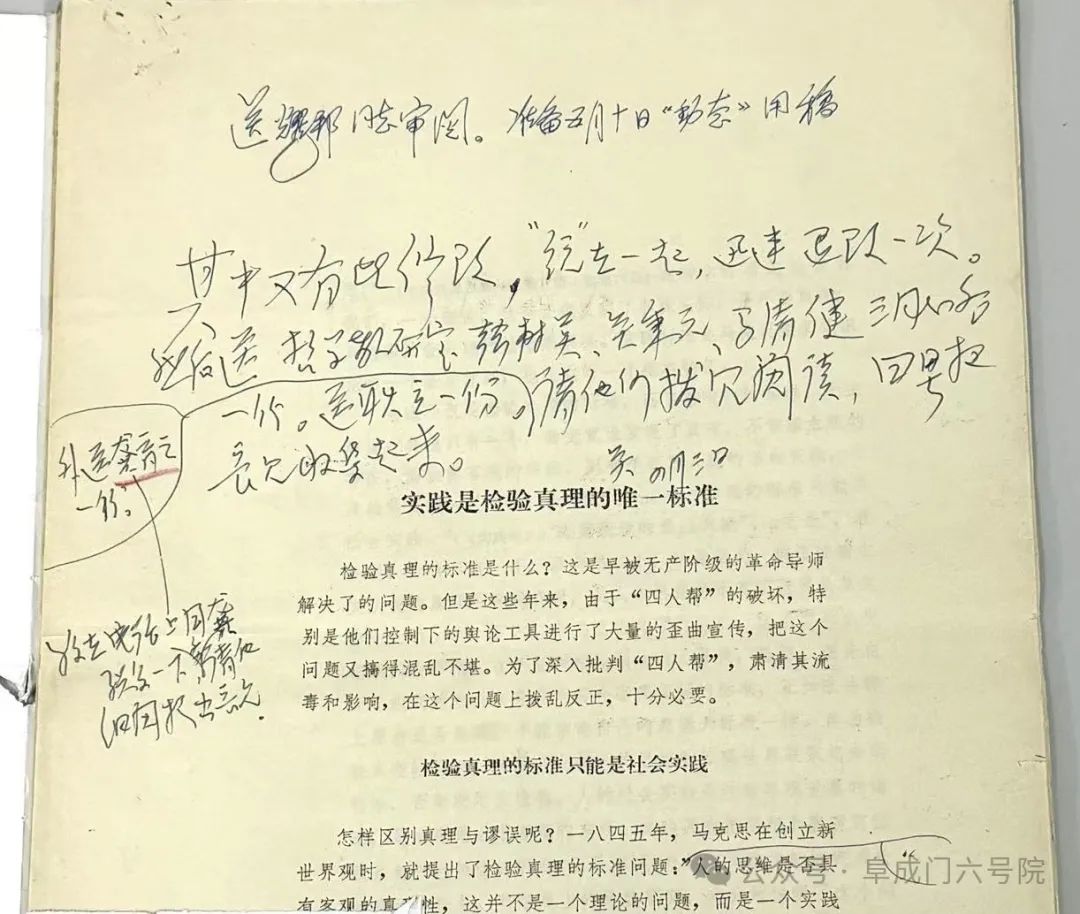 送耀邦同志审阅。准备五月十日“动态”用稿
其中又有些修改，“统”在一起，迅速退改一次。
然后送哲学教研室韩树英、吴秉元、孟 三同志各
一份。送耿立一份。请他们拨冗阅读，四 把
意见收集起来。
吴 四月三日
外送 一份。
请 他
提出意见
实践是检验真理的唯一标准
检验真理的标准是什么？这是早被无产阶级的革命导师
解决了的问题。但是这些年来，由于“四人帮”的破坏，特
别是他们控制下的舆论工具进行了大量的歪曲宣传，把这个
问题又搞得混乱不堪。为了深入批判“四人帮”，肃清其流
毒和影响，在这个问题上拨乱反正，十分必要。
检验真理的标准只能是社会实践
怎样区别真理与谬误呢？一八四五年，马克思在创立新
世界观时，就提出了检验真理的标准问题：”人的思维是否具
有客观的真理性，这并不是一个理论的问题，而是一个实践
公众号 · 阜成门六号院